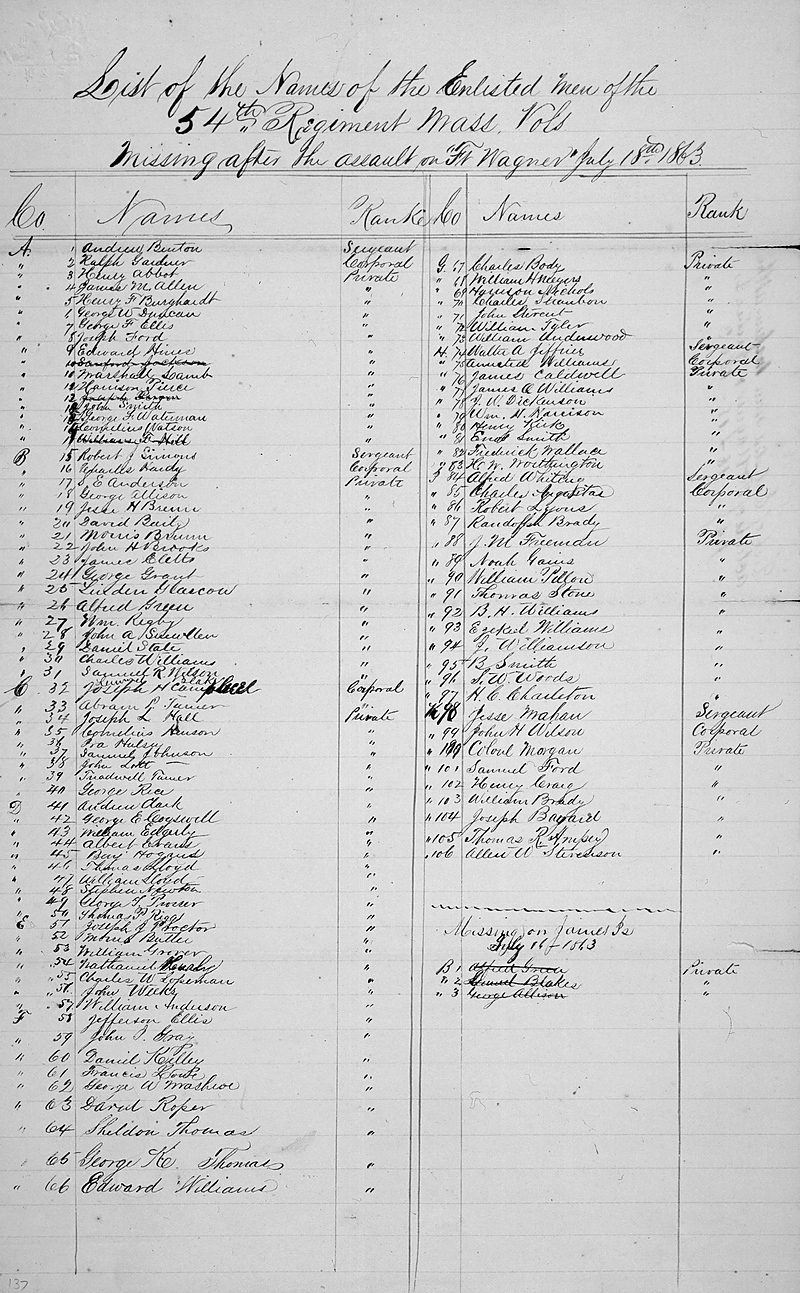 List of the Names of the Enlisted Men of the
54th Regiment Mass. Vols
Missing after the assault on "Ft Wagner" July 18th 1863.
Co. Names Rank
A. 1 Andrew Benton Sergeant
" 2 Ralph Gardner Corporal
" 3 Henry Abbot Private
" 4 James M. Allen "
" 5 Henry F. Burghardt "
" 6 George W. Duncan "
" 7 George F. Ellis "
" 8 Joseph Ford "
" 9 Edward Hines "
" 10 Sanford Jackson "
" Marshall Lamb "
" Harrison Pierce "
" 12
" Ralph Smith "
" George F. Waterman "
" Cornelius Watson "
" William F. Hill
B 15 Robert J. Simons Sergeant
" 16 Charles Hardy Corporal
" 17 S. E. Anderson Private
" 18 George Allison "
" 19 Jesse H. Brown "
" 20 David Baily "
" 21 Morris Brown "
" 22 John H. Brooks "
" 23 James Cletts "
" 24 George Grant "
" 25 Lusden Glascow "
" 26 Alfred Green "
" 27 Wm. Rigby "
" 28 John A. "
" 29 Daniel State "
" 30 Charles Williams "
" 31 Samuel R. Wilson "
C. 32 Joseph H. Campbell Corporal
" 33 Abram P. Turner "
" 34 Joseph L. Hall Private
" 35 Cornelius Henson "
" 36 Ira Hulsey "
" 37 Samuel Johnson "
" 38 John Lott "
" 39 Treadwell Turner "
" 40 George Rice "
D 41 Andrew Clark "
" 42 George E. Cogswell "
" 43 William Edgerly "
" 44 Albert Evans "
" 45 Hoggus "
" 46 Thomas Lloyd "
" 47 William Lloyd "
" 48 Stephen Newton "
" 49 George F. Procer "
" 50 Thomas P. Riggs "
E 51 Joseph J. Proctor "
" 52 Morris Butler "
" 53 William Grover "
" 54 Nathaniel "
" 55 Charles W. Lopeman "
" 56 John Weeks "
" 57 William Anderson "
F 58 Jefferson Ellis "
" 59 John T. Gray "
" 60 Daniel Kelley "
" 61 Francis Lowe "
" 62 George W. "
" 63 David Roper "
" 64 Sheldon Thomas "
" 65 George K. Thomas "
" 66 Edward Williams "
Co Names Rank
G. 67 Charles Body Private
" 68 William H. Meyers "
" 69 Harrison Nichols "
" 70 Charles "
" 71 John Stewent "
" 72 William Tyler "
" 73 William Underwood "
H. 74 Walter A. Jeffries Sergeant
" 75 Armsted Williams Corporal
" 76 James Caldwell Private
" 77 James O. Williams "
" 78 J. W. Dickenson "
" 79 Wm. H. Harrison "
" 80 Henry Kirk "
" 81 Enos Smith "
" 82 Frederick Wallace "
" 83 H. W. Worthington "
I 84 Alfred Whiting Sergeant
" 85 Charles Augustus Corporal
" 86 Robert Lyons "
" 87 Randolph Brady "
" 88 J. M. Freeman Private
" 89 Noah Gains "
" 90 William Pitton "
" 91 Thomas Stone "
" 92 B. H. Williams "
" 93 Ezekiel Williams "
" 94 J. Williamson "
" 95 B. Smith "
" 96 S. W. Woods "
" 97 H. C. Charleton "
K 98 Jesse Mahan Sergeant
" 99 John H. Wilson Corporal
" 100 Colonl Morgan Private
" 101 Samuel Ford "
" 102 Henry Craig "
" 103 William Brady "
" 104 Joseph Bayard "
" 105 Thomas R. Ampey "
" 106 Allen W. Stevenson "
Missing on James Is
July 16 - 1863
B 1 Alfred Green Private
" 2 Samuel Blakes "
" 3 George Allison "
137